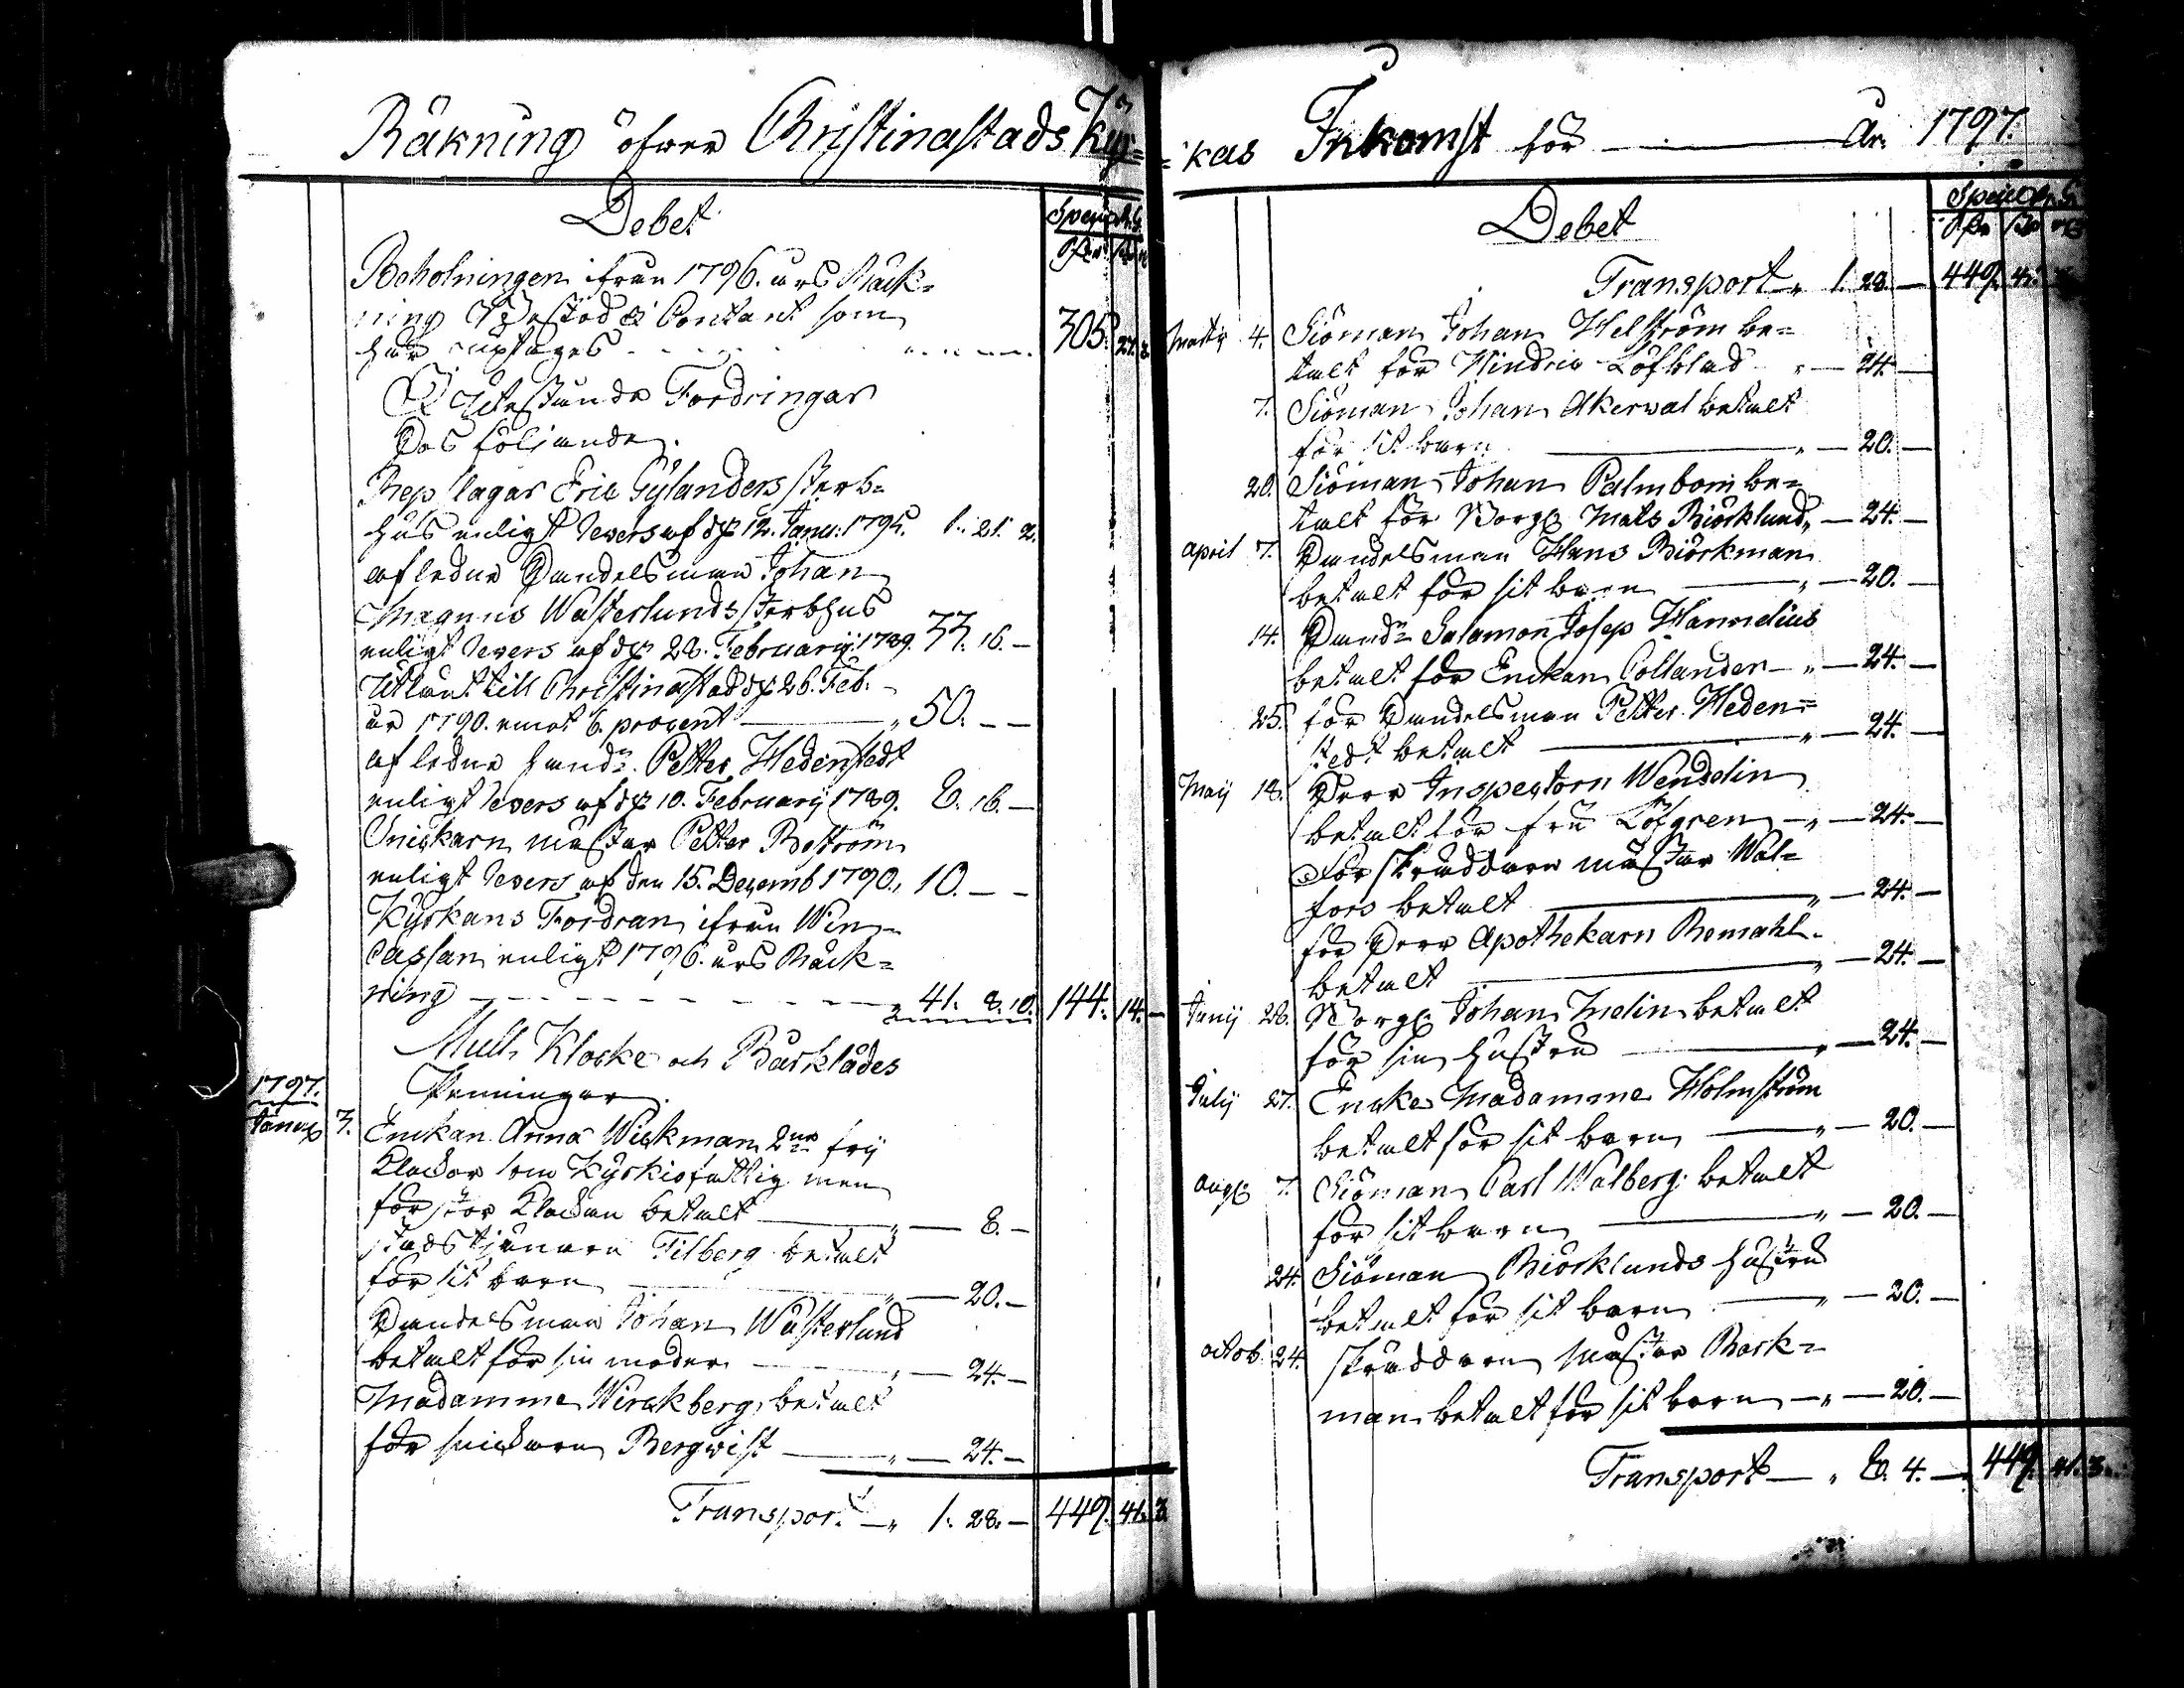 Räkning öfver Christinæstads Kyr=
Debet
Specie R.G.
Rdr sk r
Beholningen ifrån 1796. års Räck=
ning Bestod i Contant som
här uptages - - - - 305. 27. 3
I Utestånde Fordringar
Dos följande.
Repslagar Eric Gylanders sterb=
hus enligt Revers af d. 12. Janu: 1795. 1. 21. 2.
afledne Handelsman Johan
Magnus Wästerlunds sterbhus
enligt Revers af d. 28. Februarij 1789. 33. 16. —
Utlånt till Christinæstad d. 26. Feb.
år 1790. emot 6. procent — „ 50. — —
afledne Hand:n Petter Hedenstedt
enligt Revers af d. 10. Februarij 1789. 8. 16. —
Snickarn mästar Petter Boström
enligt Revers af den 15. Decemb 1790. „ 10. — —
Kyrkans Fordran ifrån Win=
Cassan enligt 1796. års Räck=
ning - - - - 41. 8. 10. 144. 14. —
Mull, Klocke och Bårklädes
Penningar.
1797.
Januarij 3. Enckan Anna Wickman 2:ne frij
Klockor som Kyrkiofattig men
för stor Klockan betalt — „ — 8. —
stadstjenaren Tilberg betalt
för sit barn — „ — 20. —
Handelsman Johan Wästerlund
betalt för sin moder — „ — 24. —
Madamme Wirckberg betalt
för snickaren Bergwist — „ — 24. —
Transport — „ 1. 28. — 449. 41. 3.
=kas Inkomst för — År 1797.
Debet
Specie R.G.
Rdr sk r
Transport „ 1. 28. — 449. 41.
Martij 4. Siöman Johan Helström be=
talt för Hindric Löfblad „ — 24. —
7. Siöman Johan Akerwal betalt
för sit barn — „ — 20. —
20. Siöman Johan Palmbom be=
talt för Borg: Mats Biörklund „ — 24. —
April 7. Handelsman Hans Biörkman
betalt för sit barn — „ — 20. —
14. Hand:n Salamon Josep Hannelius
betalt för Enckan Collander — „ — 24. —
25. för Handelsman Petter Heden=
stedt betalt — „ — 24. —
Maij 18. Herr Inspectorn Wendelin
betalt för fru Löfgren — „ — 24. —
För skräddare mästar Wal=
fors betalt — „ — 24. —
för Herr Apothekarn Bemahl
betalt — „ — 24. —
Junij 28. Borg: Johan Inelin betalt
för sin hustru — „ — 24. —
Julij 27. Encke Madamme Holmström
betalt för sit barn — „ — 20. —
Aug: 7. Siöman Carl Walberg betalt
för sit barn — „ — 20. —
24. Siöman Biörklunds hustru
betalt för sit barn — „ — 20. —
Octob. 24. skräddaren mästar Back=
man betalt för sit barn — „ — 20. —
Transport — „ 8. 4. — 449. 41. 3.